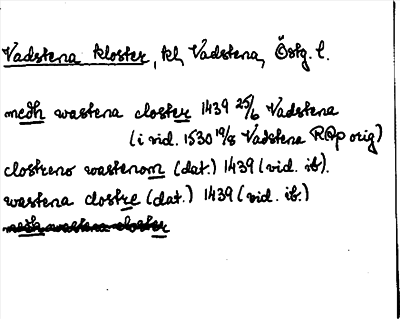 Vadstena kloster, kl, Vadstena, Östg. l.
medh wastena closter 1439 25/6 Vadstena
(i vid. 1530 19/8 Vadstena RAp orig)
clostreno wastenom (dat.) 1439 (vid. ib).
wastena clostre (dat.) 1439 (vid. ib.)